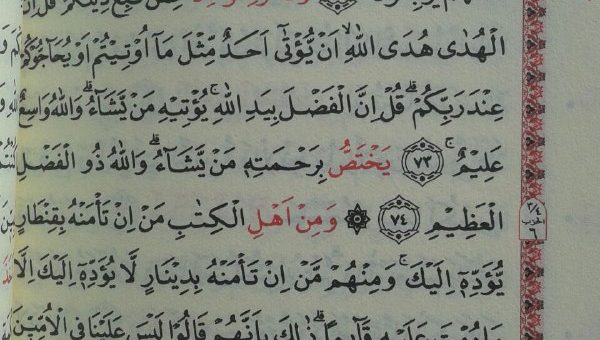 الْهُدٰى هُدَى اللّٰهِۙ اَنْ يُّؤْتٰٓى اَحَدٌ مِّثْلَ مَآ اُوْتِيْتُمْ اَوْ يُحَآجُّوْكُمْ
عِنْدَ رَبِّكُمْۗ قُلْ اِنَّ الْفَضْلَ بِيَدِ اللّٰهِۚ يُؤْتِيْهِ مَنْ يَّشَاۤءُۗ وَاللّٰهُ وَاسِعٌ
عَلِيْمٌۚ ٧٣ يَخْتَصُّ بِرَحْمَتِهٖ مَنْ يَّشَاۤءُۗ وَاللّٰهُ ذُو الْفَضْلِ
الْعَظِيْمِ ٧٤ ۞ وَمِنْ اَهْلِ الْكِتٰبِ مَنْ اِنْ تَأْمَنْهُ بِقِنْطَارٍ
يُّؤَدِّهٖٓ اِلَيْكَۚ وَمِنْهُمْ مَّنْ اِنْ تَأْمَنْهُ بِدِيْنَارٍ لَّا يُؤَدِّهٖٓ اِلَيْكَ اِلَّا
قَآىِٕمًاۗ ذٰلِكَ بِاَنَّهُمْ قَالُوْا لَيْسَ عَلَيْنَا فِى الْاُمِّيّٖنَ
٣/٤
الحزب
٦